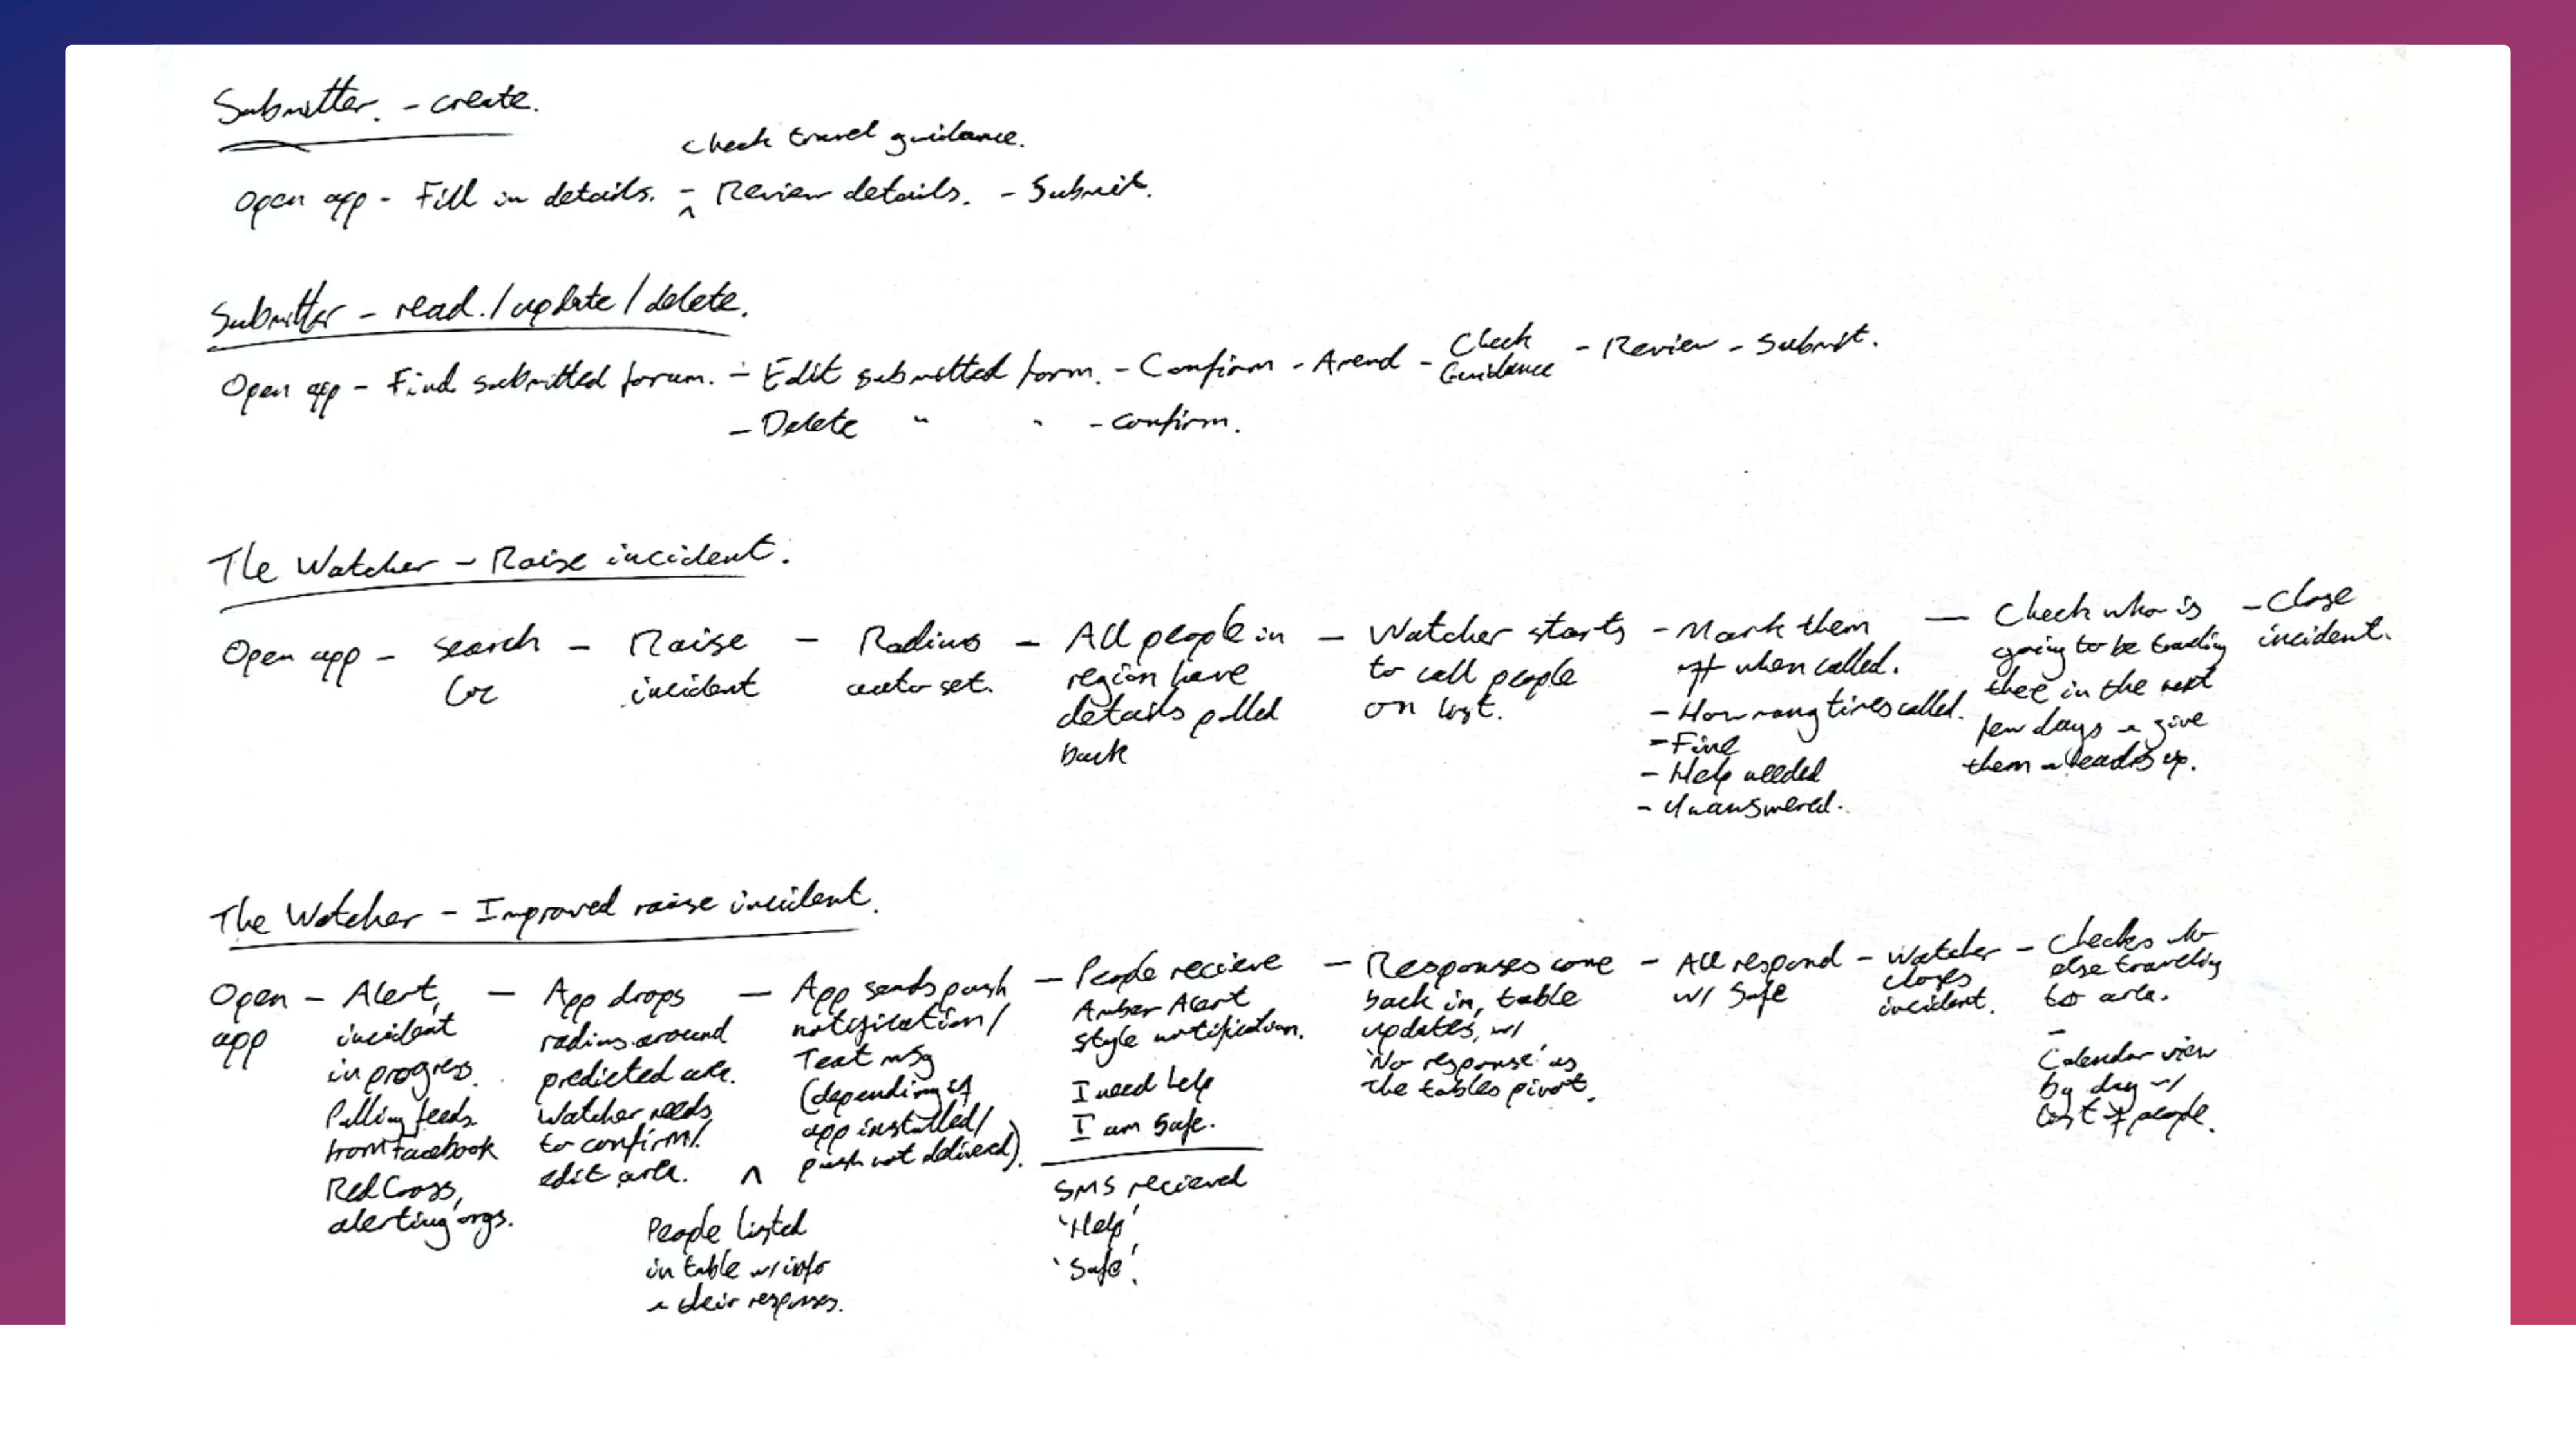 Submitter. - create.
check travel guidance.
Open app - Fill in details. - ^ Review details. - Submit.
Submitter - read. / update / delete.
Open app - Find submitted forum. - Edit submitted form. - Confirm - Amend - Check Guidance - Review - Submit.
- Delete " " - Confirm.
The Watcher - Raise incident.
Open app - search loc - Raise incident - Radius auto set. -
All people in
region have
details pulled
back
- Watcher starts
to call people
on list.
- Mark them
off when called.
- How many times called.
- Fine
- Help needed
- Unanswered.
- Check who is
going to be traveling
there in the next
few days + give
them a heads up.
- Close
incident.
The Watcher - Improved raise incident.
Open
app
- Alert,
incident
in progress.
Pulling feeds
from Facebook
Red Cross,
alerting orgs.
- App drops
radius around
predicted area.
Watcher needs
to confirm/
edit area.
^
People listed
in table w/ info
+ their responses.
- App sends push
notification/
Text msg
(depending if
app installed/
push not delivered).
- People recieve
Amber Alert
style notification.
I need help
I am Safe.
SMS recieved
'Help'
'Safe'.
- Responses come
back in, table
updates, w/
'No response' as
the tables pivot.
- All respond
w/ Safe
- Watcher
closes
incident.
- Checks who
else traveling
to area.
-
Calendar view
by day w/
list of people.